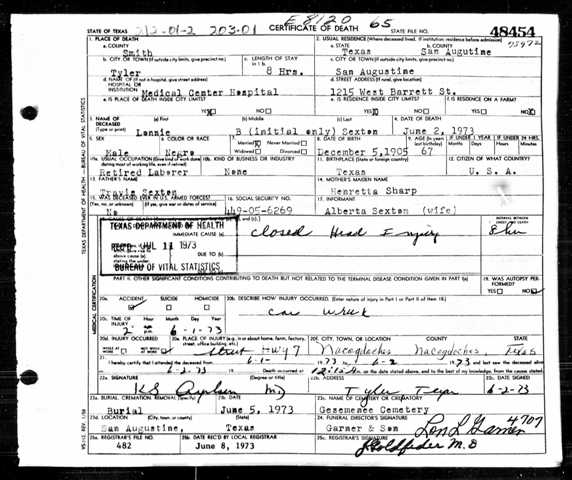 E8120 65
STATE OF TEXAS 212-01-2 203-01 CERTIFICATE OF DEATH 48454
1. PLACE OF DEATH 2. USUAL RESIDENCE (Where deceased lived. If institution: residence before admission)
a. COUNTY a. STATE b. COUNTY
Smith Texas San Augutine
b. CITY OR TOWN (If outside city limits, give precinct no.) c. LENGTH OF STAY in 1 b. c. CITY OR TOWN (If outside city limits, give precinct no.)
Tyler 8 Hrs. San Augustine
d. NAME OF (If not in hospital, give street address) HOSPITAL OR INSTITUTION d. STREET ADDRESS (If rural, give location)
Medical Center Hospital 1215 West Barrett St.
e. IS PLACE OF DEATH INSIDE CITY LIMITS? YES NO e. IS RESIDENCE INSIDE CITY LIMITS? YES NO f. IS RESIDENCE ON A FARM? YES NO
3. NAME OF DECEASED (Type or print) (a) First (b) Middle (c) Last 4. DATE OF DEATH
Lonnie B (initial only) Sexton June 2, 1973
5. SEX 6. COLOR OR RACE 7. Married Never Married Widowed Divorced 8. DATE OF BIRTH 9. AGE (In years last birthday) IF UNDER 1 YEAR Months Days IF UNDER 24 HRS. Hours Minutes
Male Negro December 5,1905 67
10a. USUAL OCCUPATION (Give kind of work done during most of working life, even if retired) 10b. KIND OF BUSINESS OR INDUSTRY 11. BIRTHPLACE (State or foreign country) 12. CITIZEN OF WHAT COUNTRY?
Retired Laborer None Texas U. S. A.
13. FATHER'S NAME 14. MOTHER'S MAIDEN NAME
Travis Sexton Henretta Sharp
15. WAS DECEASED EVER IN U.S. ARMED FORCES? (Yes, no, or unknown) (If yes, give war or dates of service) 16. SOCIAL SECURITY NO. 17. INFORMANT
No 449-05-6269 Alberta Sexton (wife)
TEXAS DEPARTMENT OF HEALTH
REC'D JUL 11 1973
BUREAU OF VITAL STATISTICS
IMMEDIATE CAUSE (a) Closed Head Injury 8 hrs
DUE TO (b)
DUE TO (c)
INTERVAL BETWEEN ONSET AND DEATH
PART II. OTHER SIGNIFICANT CONDITIONS CONTRIBUTING TO DEATH BUT NOT RELATED TO THE TERMINAL DISEASE CONDITION GIVEN IN PART I (a) 19. WAS AUTOPSY PERFORMED? YES NO
20a. ACCIDENT SUICIDE HOMICIDE 20b. DESCRIBE HOW INJURY OCCURRED. (Enter nature of injury in Part I or Part II of item 18.)
car wreck
20c. TIME OF INJURY Hour Month Day Year
6-1-73
20d. INJURY OCCURRED WHILE AT WORK NOT WHILE AT WORK 20e. PLACE OF INJURY (e.g., in or about home, farm, factory, street, office building, etc.) 20f. CITY, TOWN, OR LOCATION COUNTY STATE
street Hwy 7 Nacogdoches Nacogdoches, Texas
6-1- 73 6-2 73 and last saw the deceased alive
6-2-73 Death occurred at on the date stated above, and to the best of my knowledge, from the causes stated.
22a. SIGNATURE (Degree or title) 22b. ADDRESS 22c. DATE SIGNED
MD Tyler Texas 6-2-73
23a. BURIAL CREMATION, REMOVAL (Specify) 23b. DATE 23c. NAME OF CEMETERY OR CREMATORY
Burial June 5, 1973 Gesemenee Cemetery
23d. LOCATION (City, town, or county) (State) 24. FUNERAL DIRECTOR'S SIGNATURE 4707
San Augustine, Texas Garner & Son Lon L Garner
25a. REGISTRAR'S FILE NO. 25b. DATE REC'D BY LOCAL REGISTRAR 25c. REGISTRAR'S SIGNATURE
482 June 8, 1973 J Goldfeder M.D
TEXAS DEPARTMENT OF HEALTH — BUREAU OF VITAL STATISTICS
MEDICAL CERTIFICATION